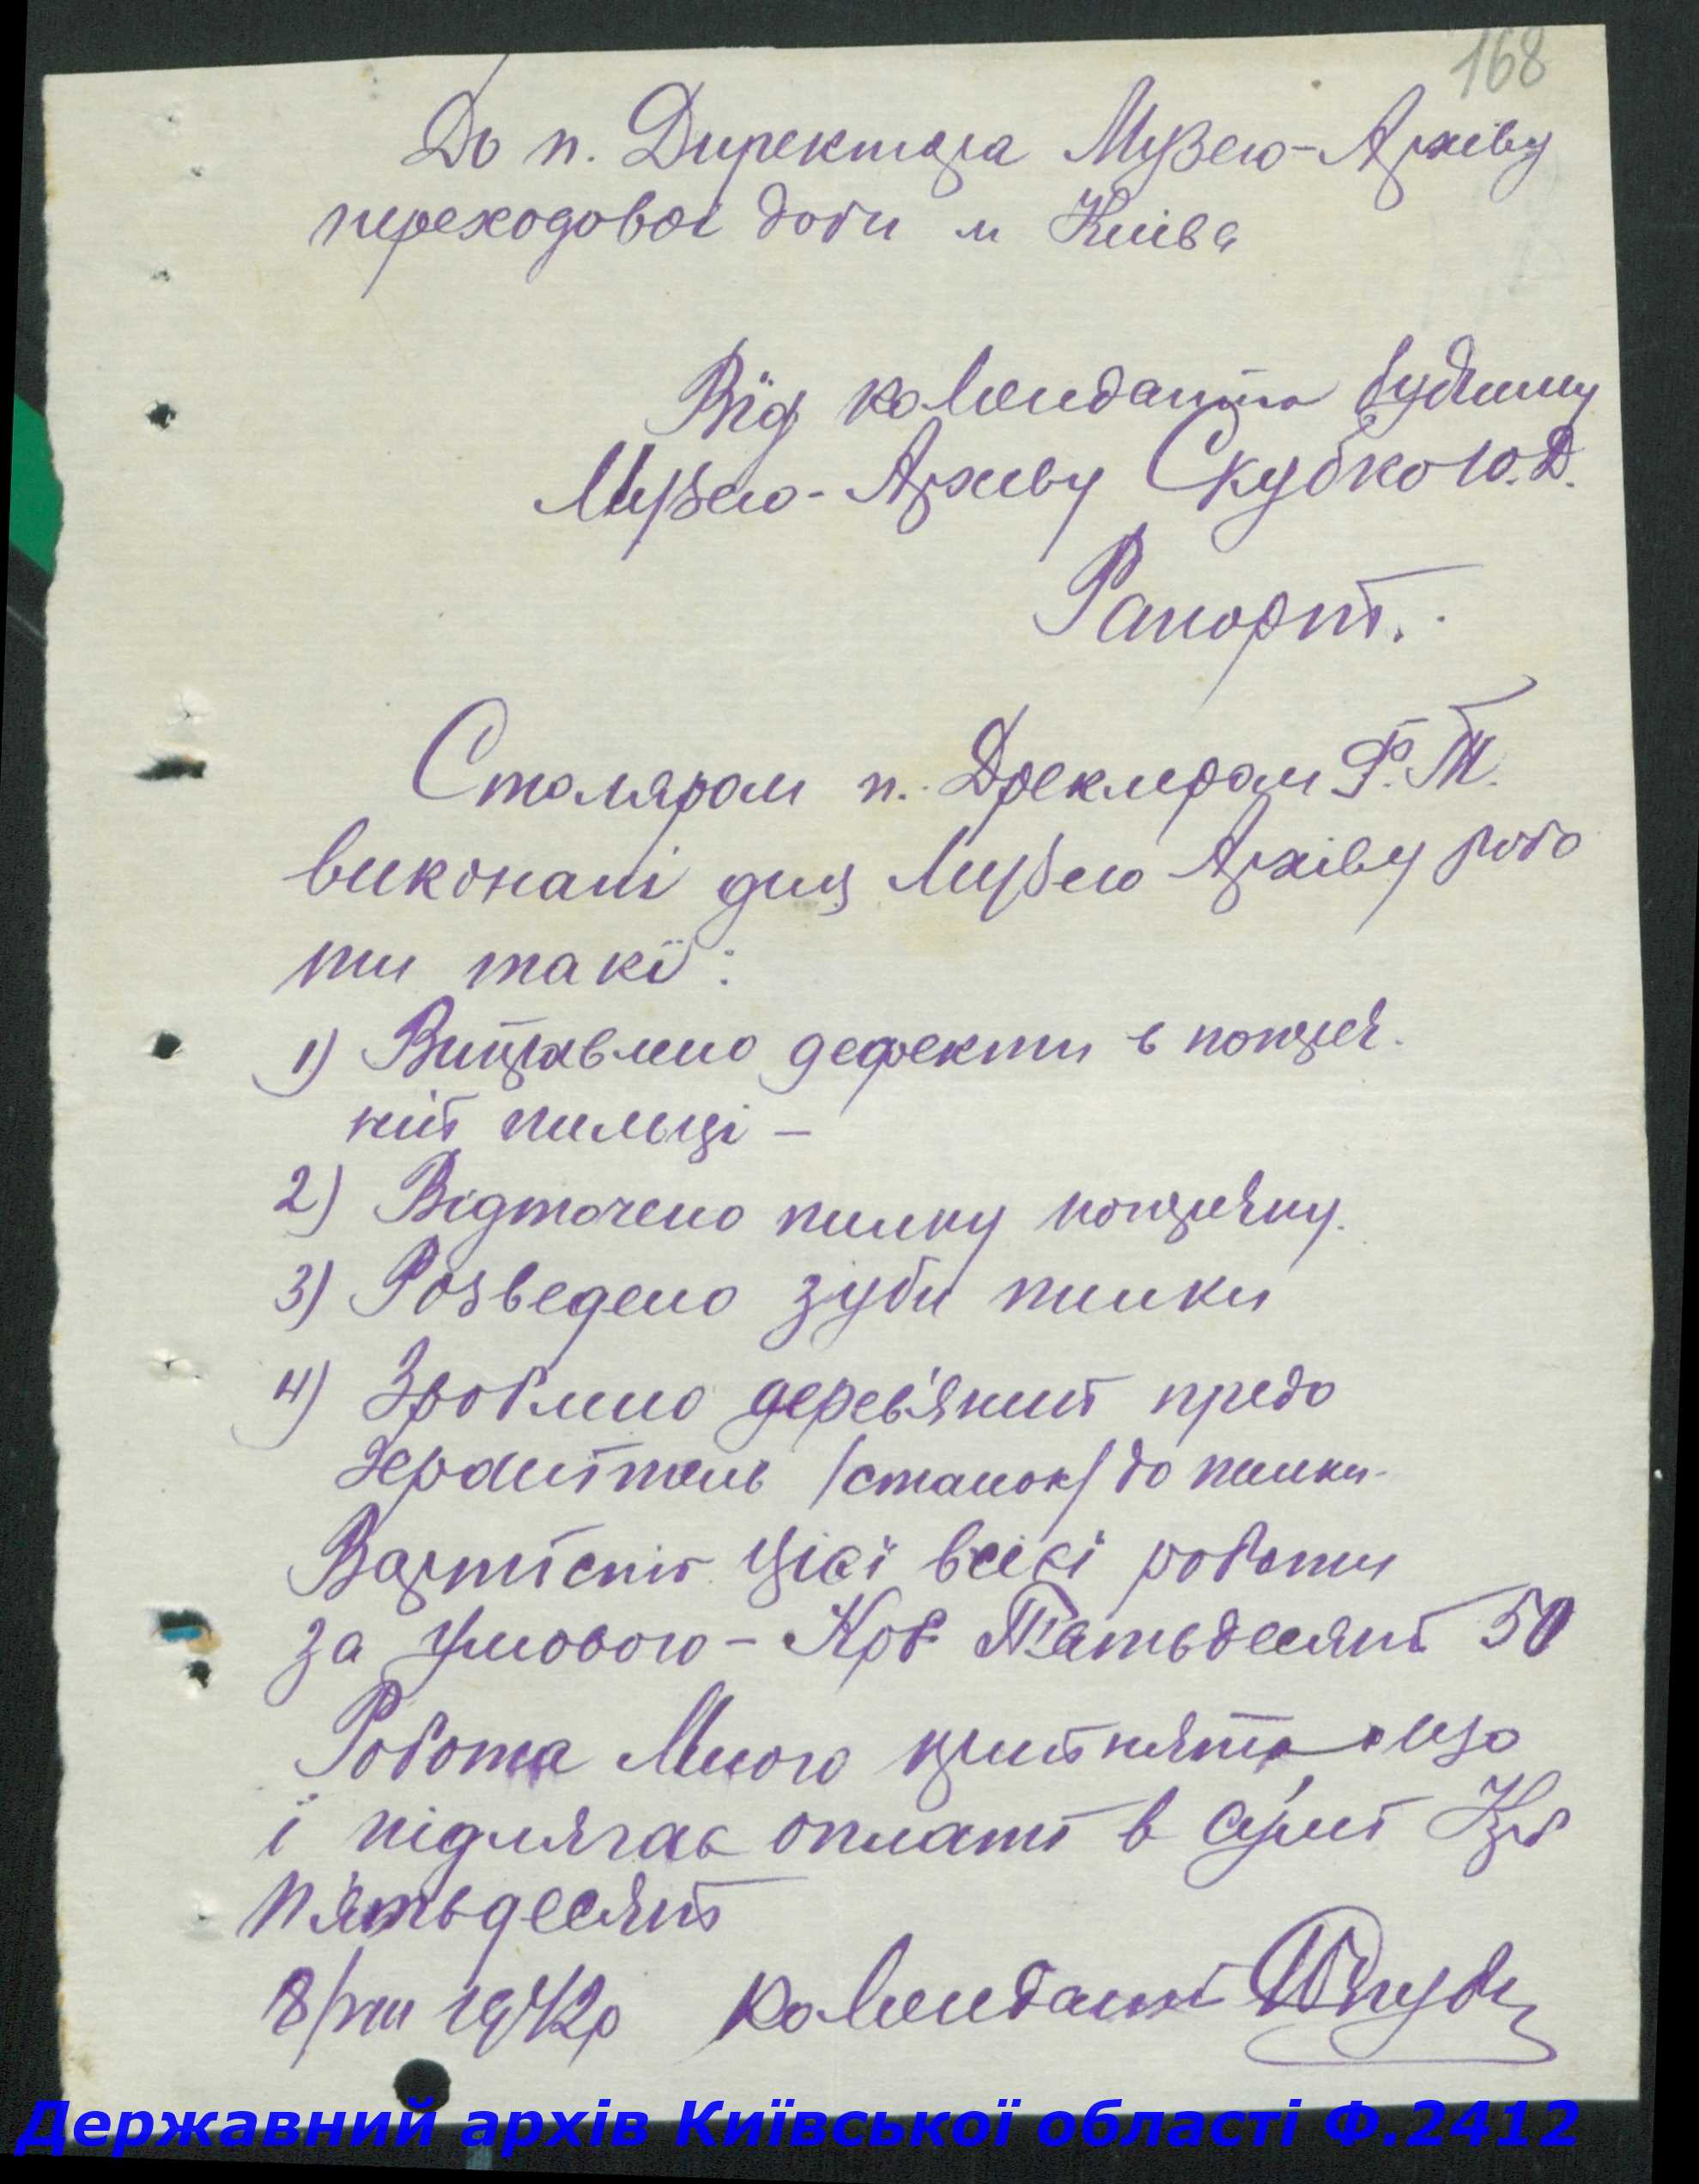 168
До п. Директора Музею-Архіву
переходової доби м Київа
Від коменданта будинку
Музею-Архиву Скубко Ю.Д.
Рапорт.
Столяром п. Дреклером Ф. Т.
виконані для Музею Архіву робо
ти такі:
1) Виправлено дефекти в попереч.
ній пильці –
2) Відточено пилку поперечну.
3) Розведено зуби пилки
4) Зроблено дерев'яний предо
хранитель /станок/ до пилки
Вартість цієї всієї роботи
за умовою – Крб. Пятьдесят 50
Робота мною прийнята
і підлягає оплаті в сумі Крб
пятьдесят
8/VIII 1942р комендант
Державний архів Київської області Ф.2412